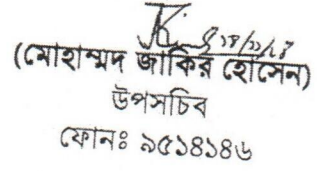 (মোহাম্মদ জাকির হোসেন)
উপসচিব
ফোনঃ ৯৫১৪১৪৬